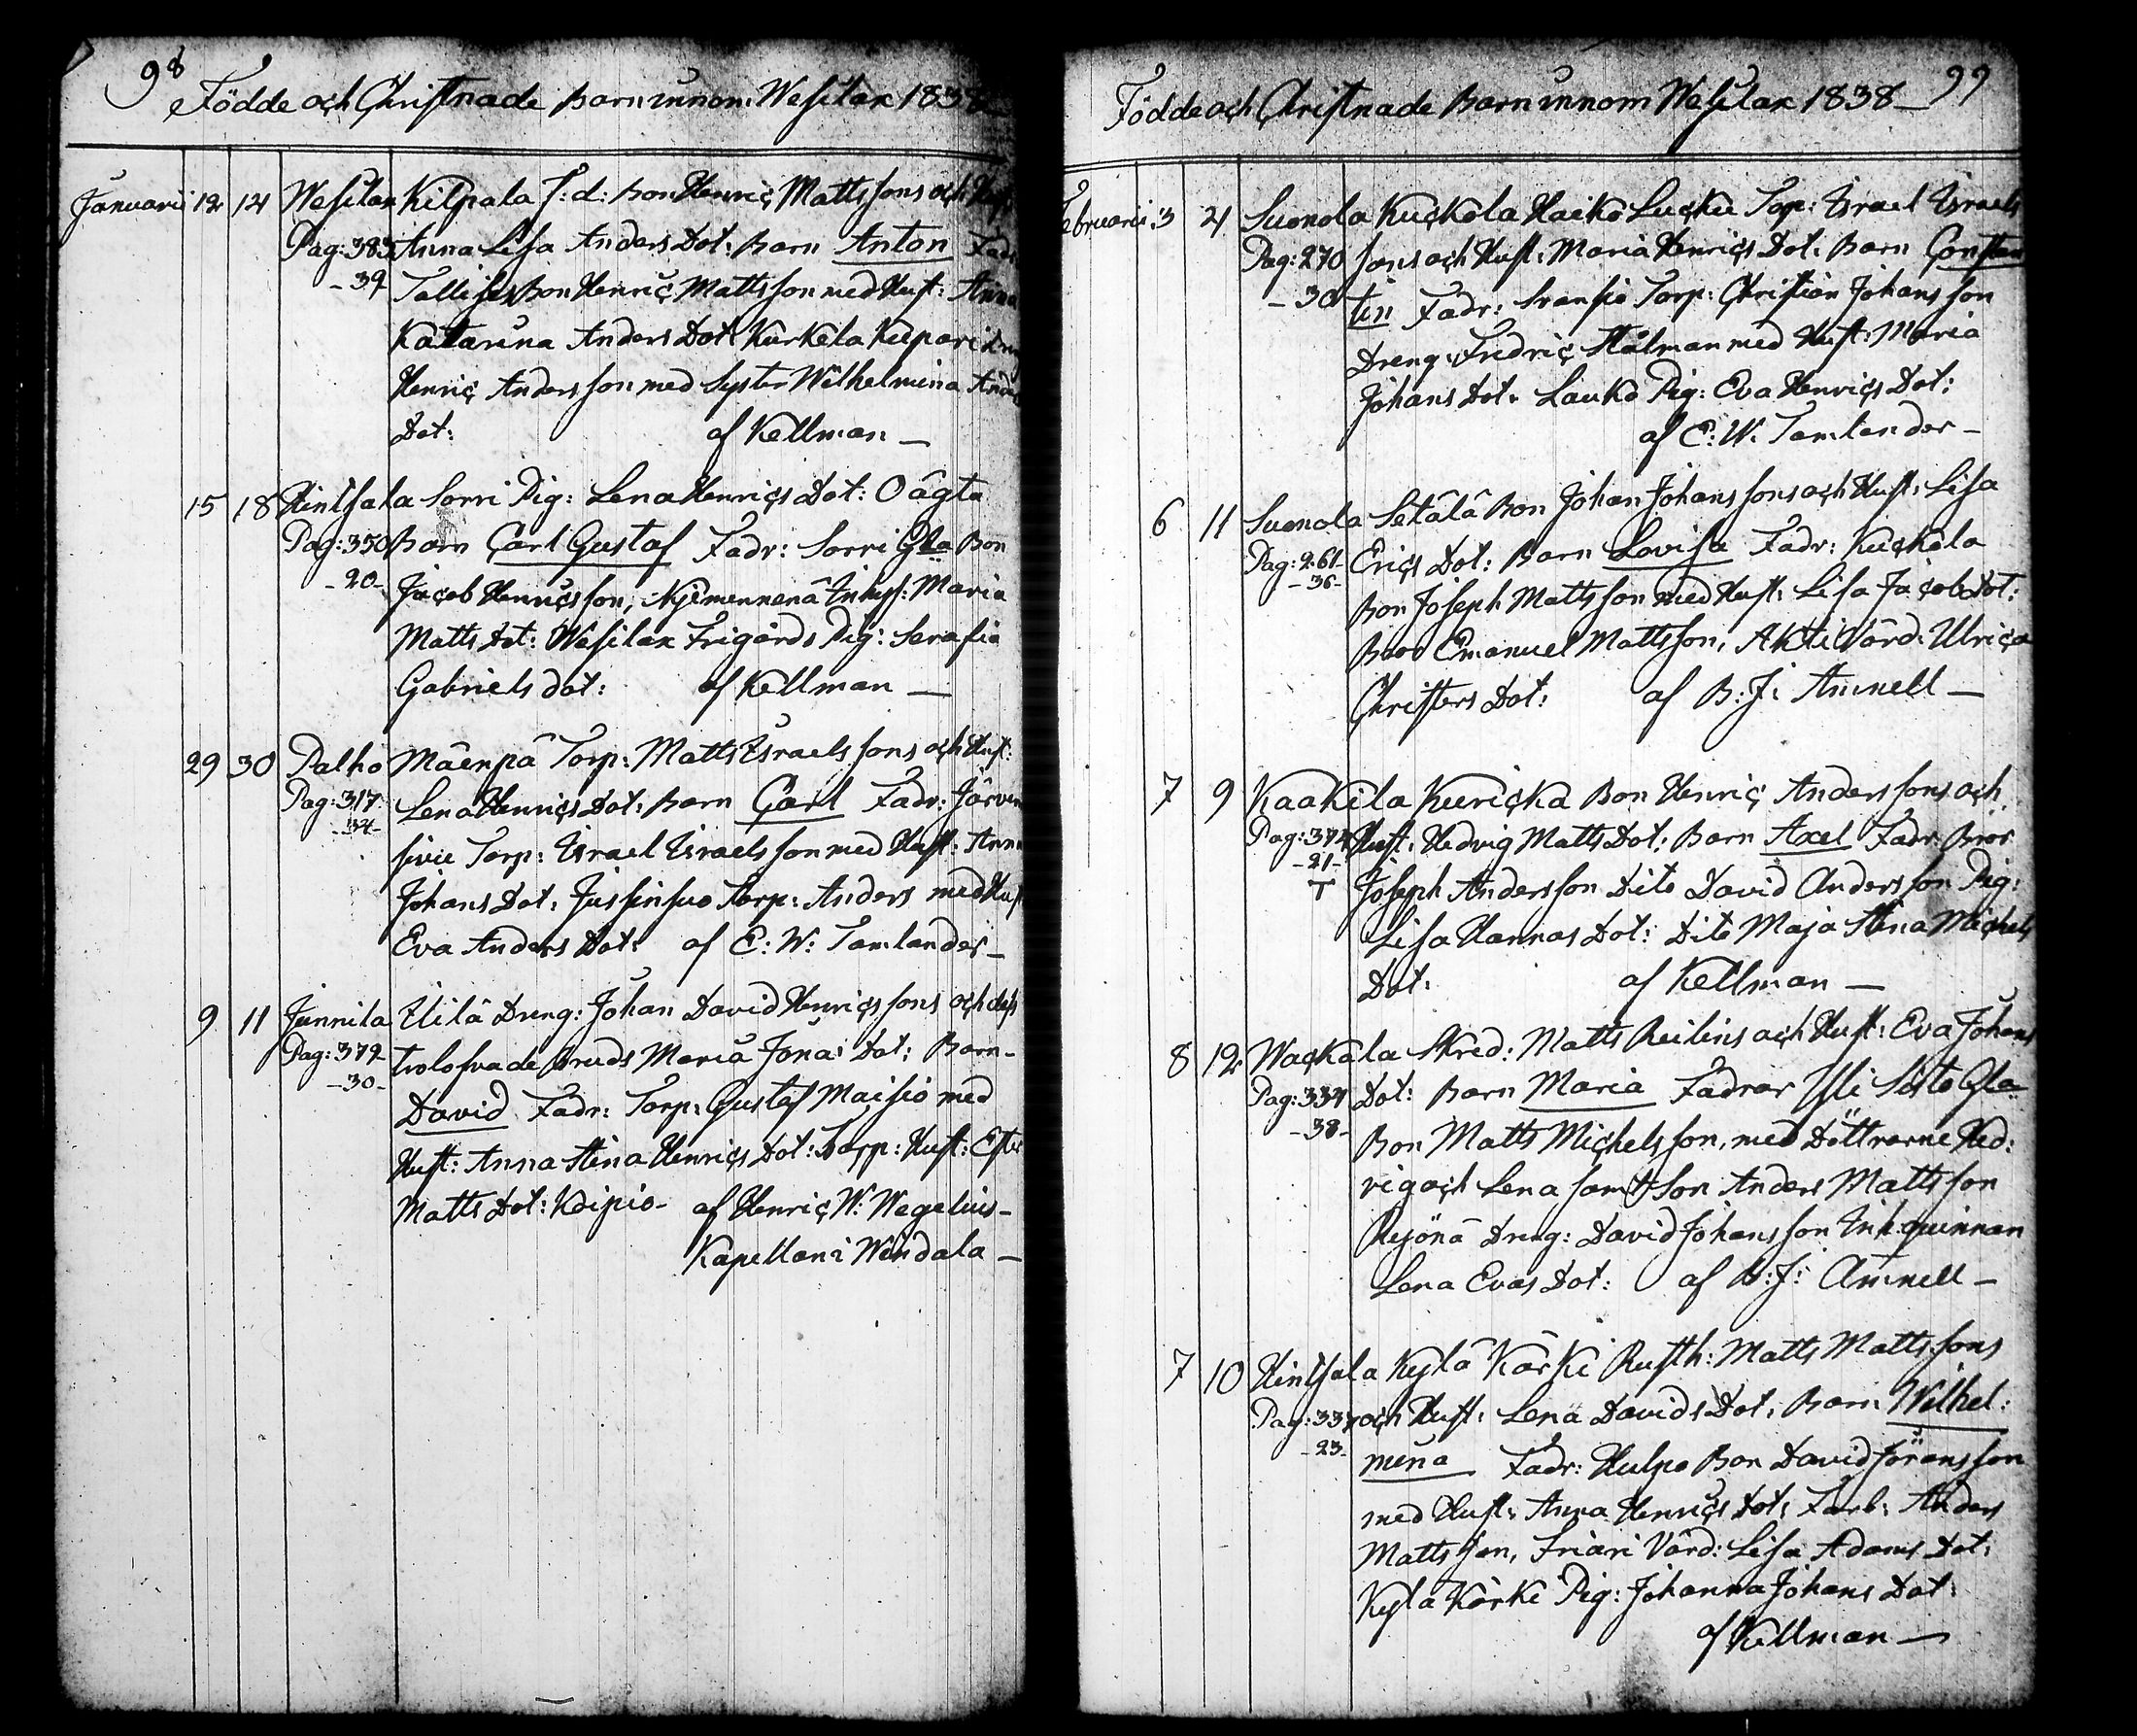 98
Födde och Christnade Barn innom Wesilax 1838
Januarii 12 14 Wesilax Kilpala f: d: Bon Henric Mattssons och Hust
Pag: 383 Anna Lisa Anders Dot: Barn Anton Fadr
-39 Bon Henric Mattsson med Hust: Anna
Katarina Anders Dot: Kurkela
Henric Andersson med Syster Wilhelmina Anders
Dot: af Kellman —
15 18 Hinsala Sorri Pig: Lena Henrics Dot: Oägta
Pag: 350 Barn Carl Gustaf Fadr: Sorri Gla Bon
-20- Jacob Henricsson, Inhys: Maria
Matts Dot: Wesilax Frigårds Pig: Serafia
Gabriels dot: af Kellman —
29 30 Palho Mäenpä Torp: Matts Israelssons och Hust:
Pag: 317 Lena Henrics Dot: Barn Carl Fadr: Järven
-34- sivu Torp: Israel Israelsson med Hust: Anna
Johans Dot: Jussinsuo Torp: Anders med Hust
Eva Anders Dot: af E: W: Tamlander —
9 11 Junnila Uilä Dreng: Johan David Henricssons och dess
Pag: 372 trolofvade Bruds Maria Jonas Dot: Barn
-30- David Fadr: Torp: Gustaf Maisio med
Hust: Anna Stina Henrics Dot: Torp: Hust: Ester
Matts Dot: Koipio- af Henric W: Wegelius-
Kapellan i Windala —
99
Födde och Christnade Barn innom Wesilax 1838
Februarii 3 4 Suonola Kuckola Haiko Lucku Torp: Israel Israels
Pag: 270 sons och Hust: Maria Henrics Dot: Barn Constan
-30 tin Fadr: Torp: Christian Johansson
Dreng: Fredric Stålman med Hust: Maria
Johans Dot: Lauko Pig: Eva Henrics Dot:
af E: W: Tamlander —
6 11 Suonola Setälä Bon Johan Johanssons och Hust: Lisa
Pag: 261 Erics Dot: Barn Lovisa Fadr: Kuckola
-36- Bon Joseph Mattsson med Hust: Lisa Jacobs Dot:
Bror Emanuel Mattsson, Akti Vård: Ulrica
Christers Dot: af B: J: Amnell —
7 9 Kaakila Kuricka Bon Henric Anderssons och
Pag: 374 Hust: Hedvig Matts Dot: Barn Axel Fadr: Bror
-21- Joseph Andersson Dito David Andersson Pig:
T Lisa Hannas Dot: Dito Maja Stina Michels
Dot: af Kellman —
8 12 Wackala Skred: Matts Reilins och Hust: Eva Johans
Pag: 334 Dot: Barn Maria Fadrar Yli Gla
-38- Bon Matts Michelsson, med Döttrarne Hed:
vig och Lena samt Son Anders Mattsson
Dreng: David Johansson Inh. quinnan
Lena Evas Dot: af B: J: Amnell —
7 10 Hinsala Kylä Kärki Rusth: Matts Mattssons
Pag: 337 och Hust: Lena Davids Dot: Barn Wilhel:
-23- mina Fadr: Hulpo Bon David Göransson
med Hust: Anna Henrics Dot: Farb: Anders
Mattsson, Friari Vård: Lisa Adams Dot:
Kylä Kärki Pig: Johanna Johans Dot:
af Kellman —